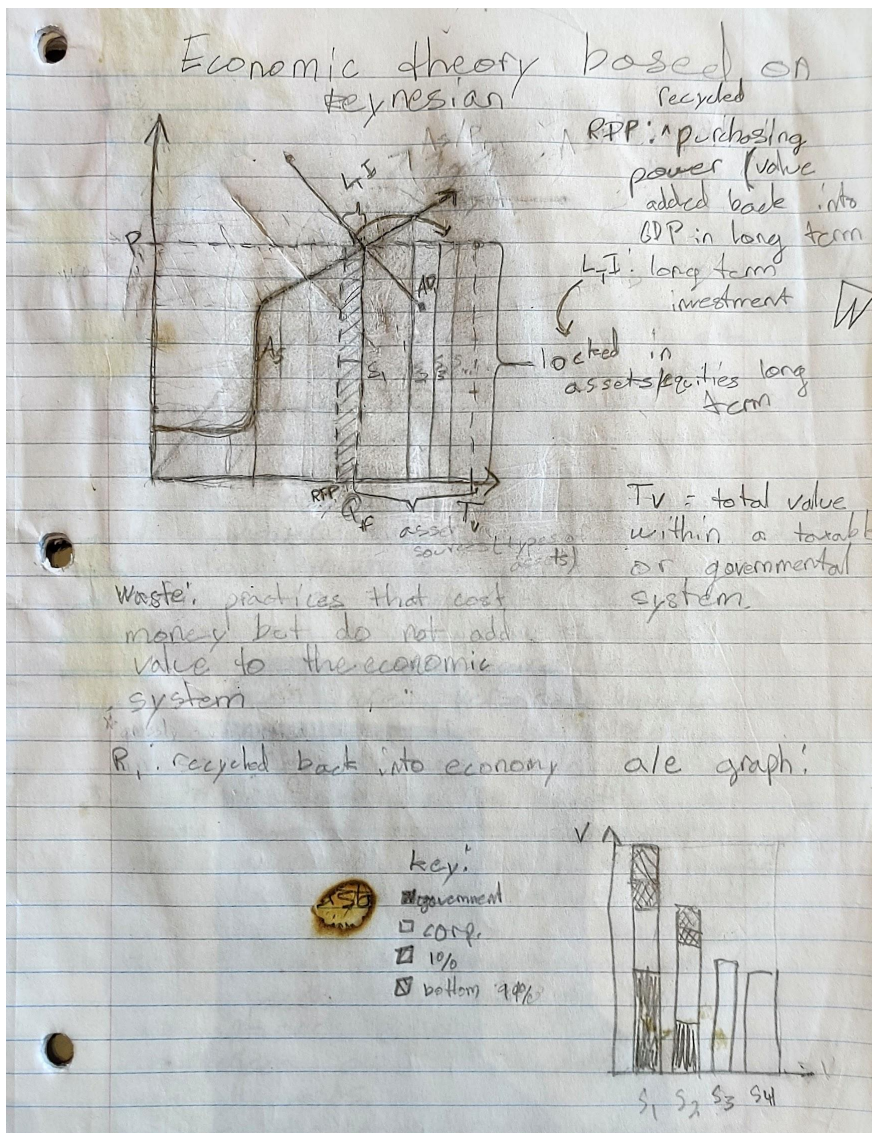 Economic theory based on
keynesian
recycled
RPP: ^ purchasing
power (value
added back into
GDP in long term
LTI: long term
investment
locked in
assets/equities long
term
As/P
LTI
P
AD
As
S1
RPP
Qf
Tv
asset
sources (types of
assets)
Tv = total value
within a taxabl
or governmental
system.
Waste: practices that cost
money but do not add
value to the economic
system
R, : recycled back into economy
a/e graph:
V
key:
government
corp.
10%
bottom 90%
S1 S2 S3 S4
V